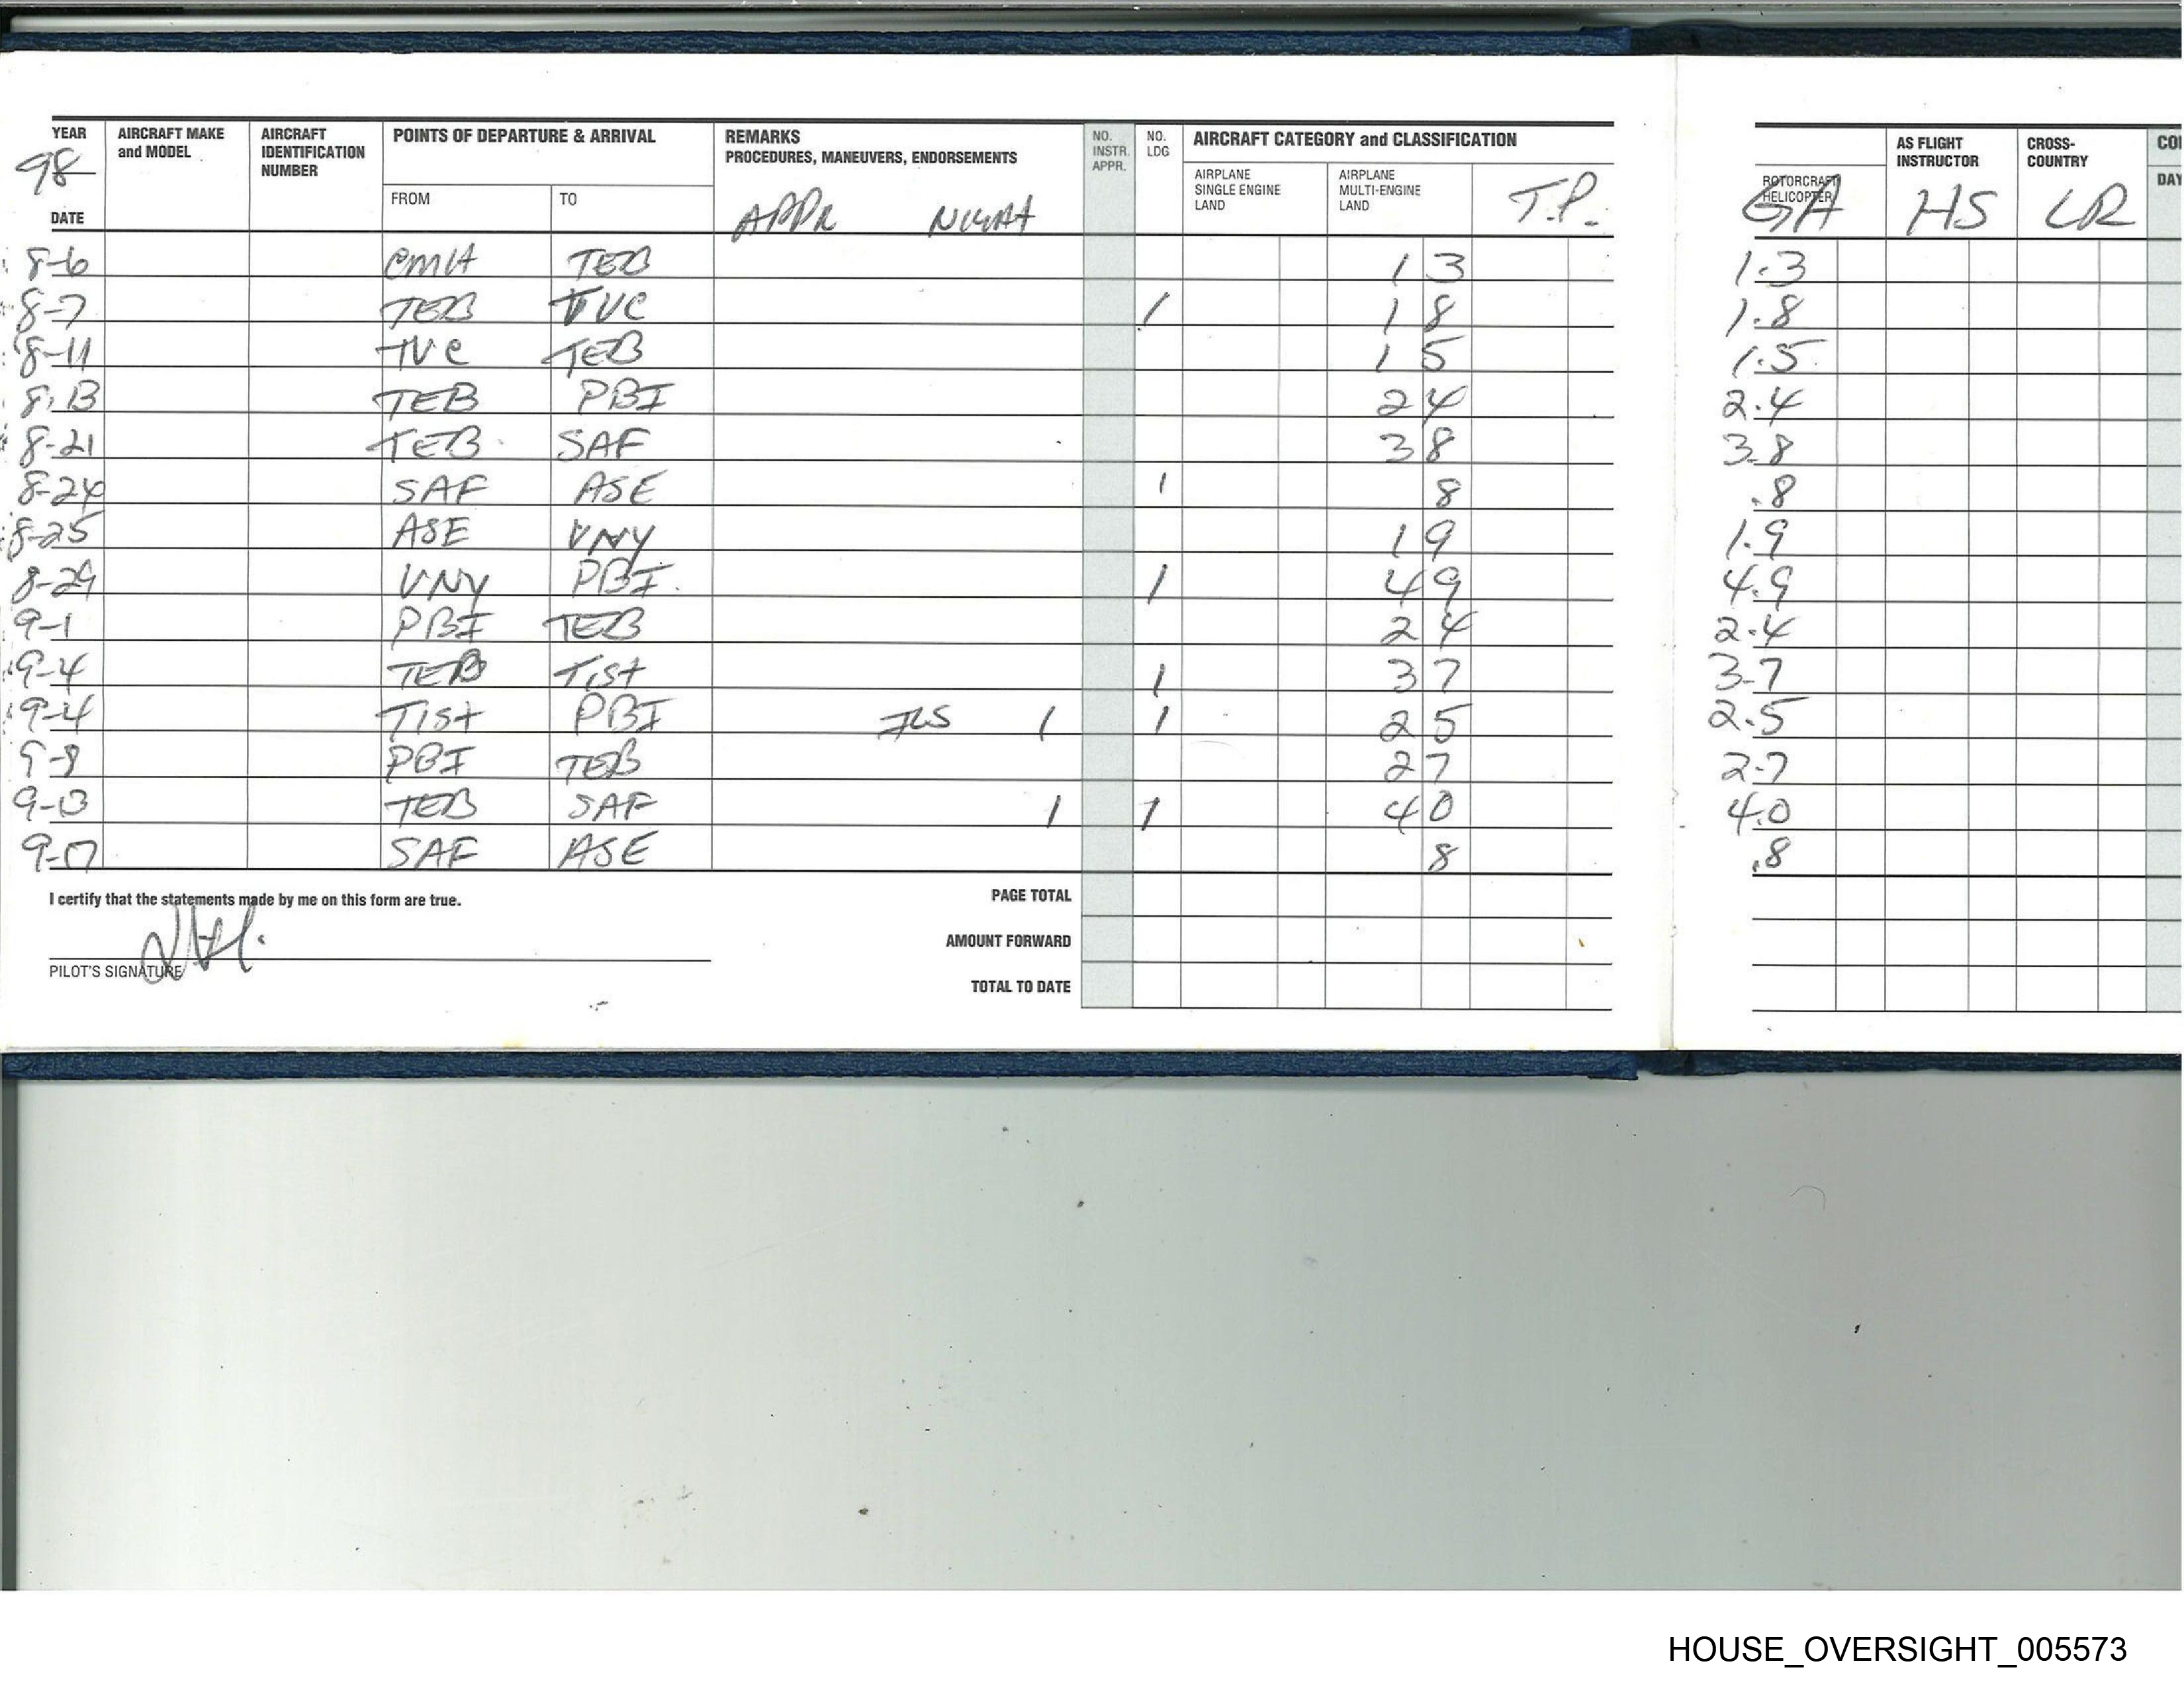 YEAR AIRCRAFT MAKE and MODEL AIRCRAFT IDENTIFICATION NUMBER POINTS OF DEPARTURE & ARRIVAL REMARKS PROCEDURES, MANEUVERS, ENDORSEMENTS NO. INSTR. APPR. NO. LDG AIRCRAFT CATEGORY and CLASSIFICATION AS FLIGHT INSTRUCTOR CROSS-COUNTRY
98 FROM TO AIRPLANE SINGLE ENGINE LAND AIRPLANE MULTI-ENGINE LAND ROTORCRAFT HELICOPTER DAY
DATE APPR NIGHT T.P. GA HS LR
8-6 CMH TEB 1 3 1.3
8-7 TEB TVC 1 1 8 1.8
8-11 TVC TEB 1 5 1.5
8-13 TEB PBI 2 4 2.4
8-21 TEB SAF 3 8 3.8
8-24 SAF ASE 1 8 .8
8-25 ASE VNY 1 9 1.9
8-29 VNY PBI 1 4 9 4.9
9-1 PBI TEB 2 4 2.4
9-4 TEB TIST 1 3 7 3.7
9-4 TIST PBI ILS 1 1 2 5 2.5
9-8 PBI TEB 2 7 2.7
9-13 TEB SAF 1 1 4 0 4.0
9-17 SAF ASE 8 .8
I certify that the statements made by me on this form are true. PAGE TOTAL
AMOUNT FORWARD
PILOT'S SIGNATURE TOTAL TO DATE
HOUSE_OVERSIGHT_005573